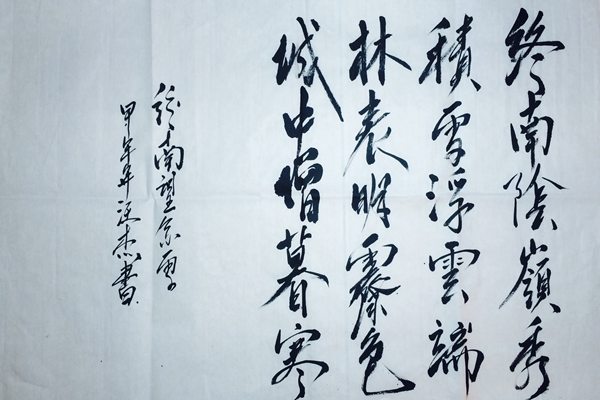 終南陰嶺秀
積雪浮雲端
林表明霽色
城中增暮寒
終南望余雪
甲午年杰書